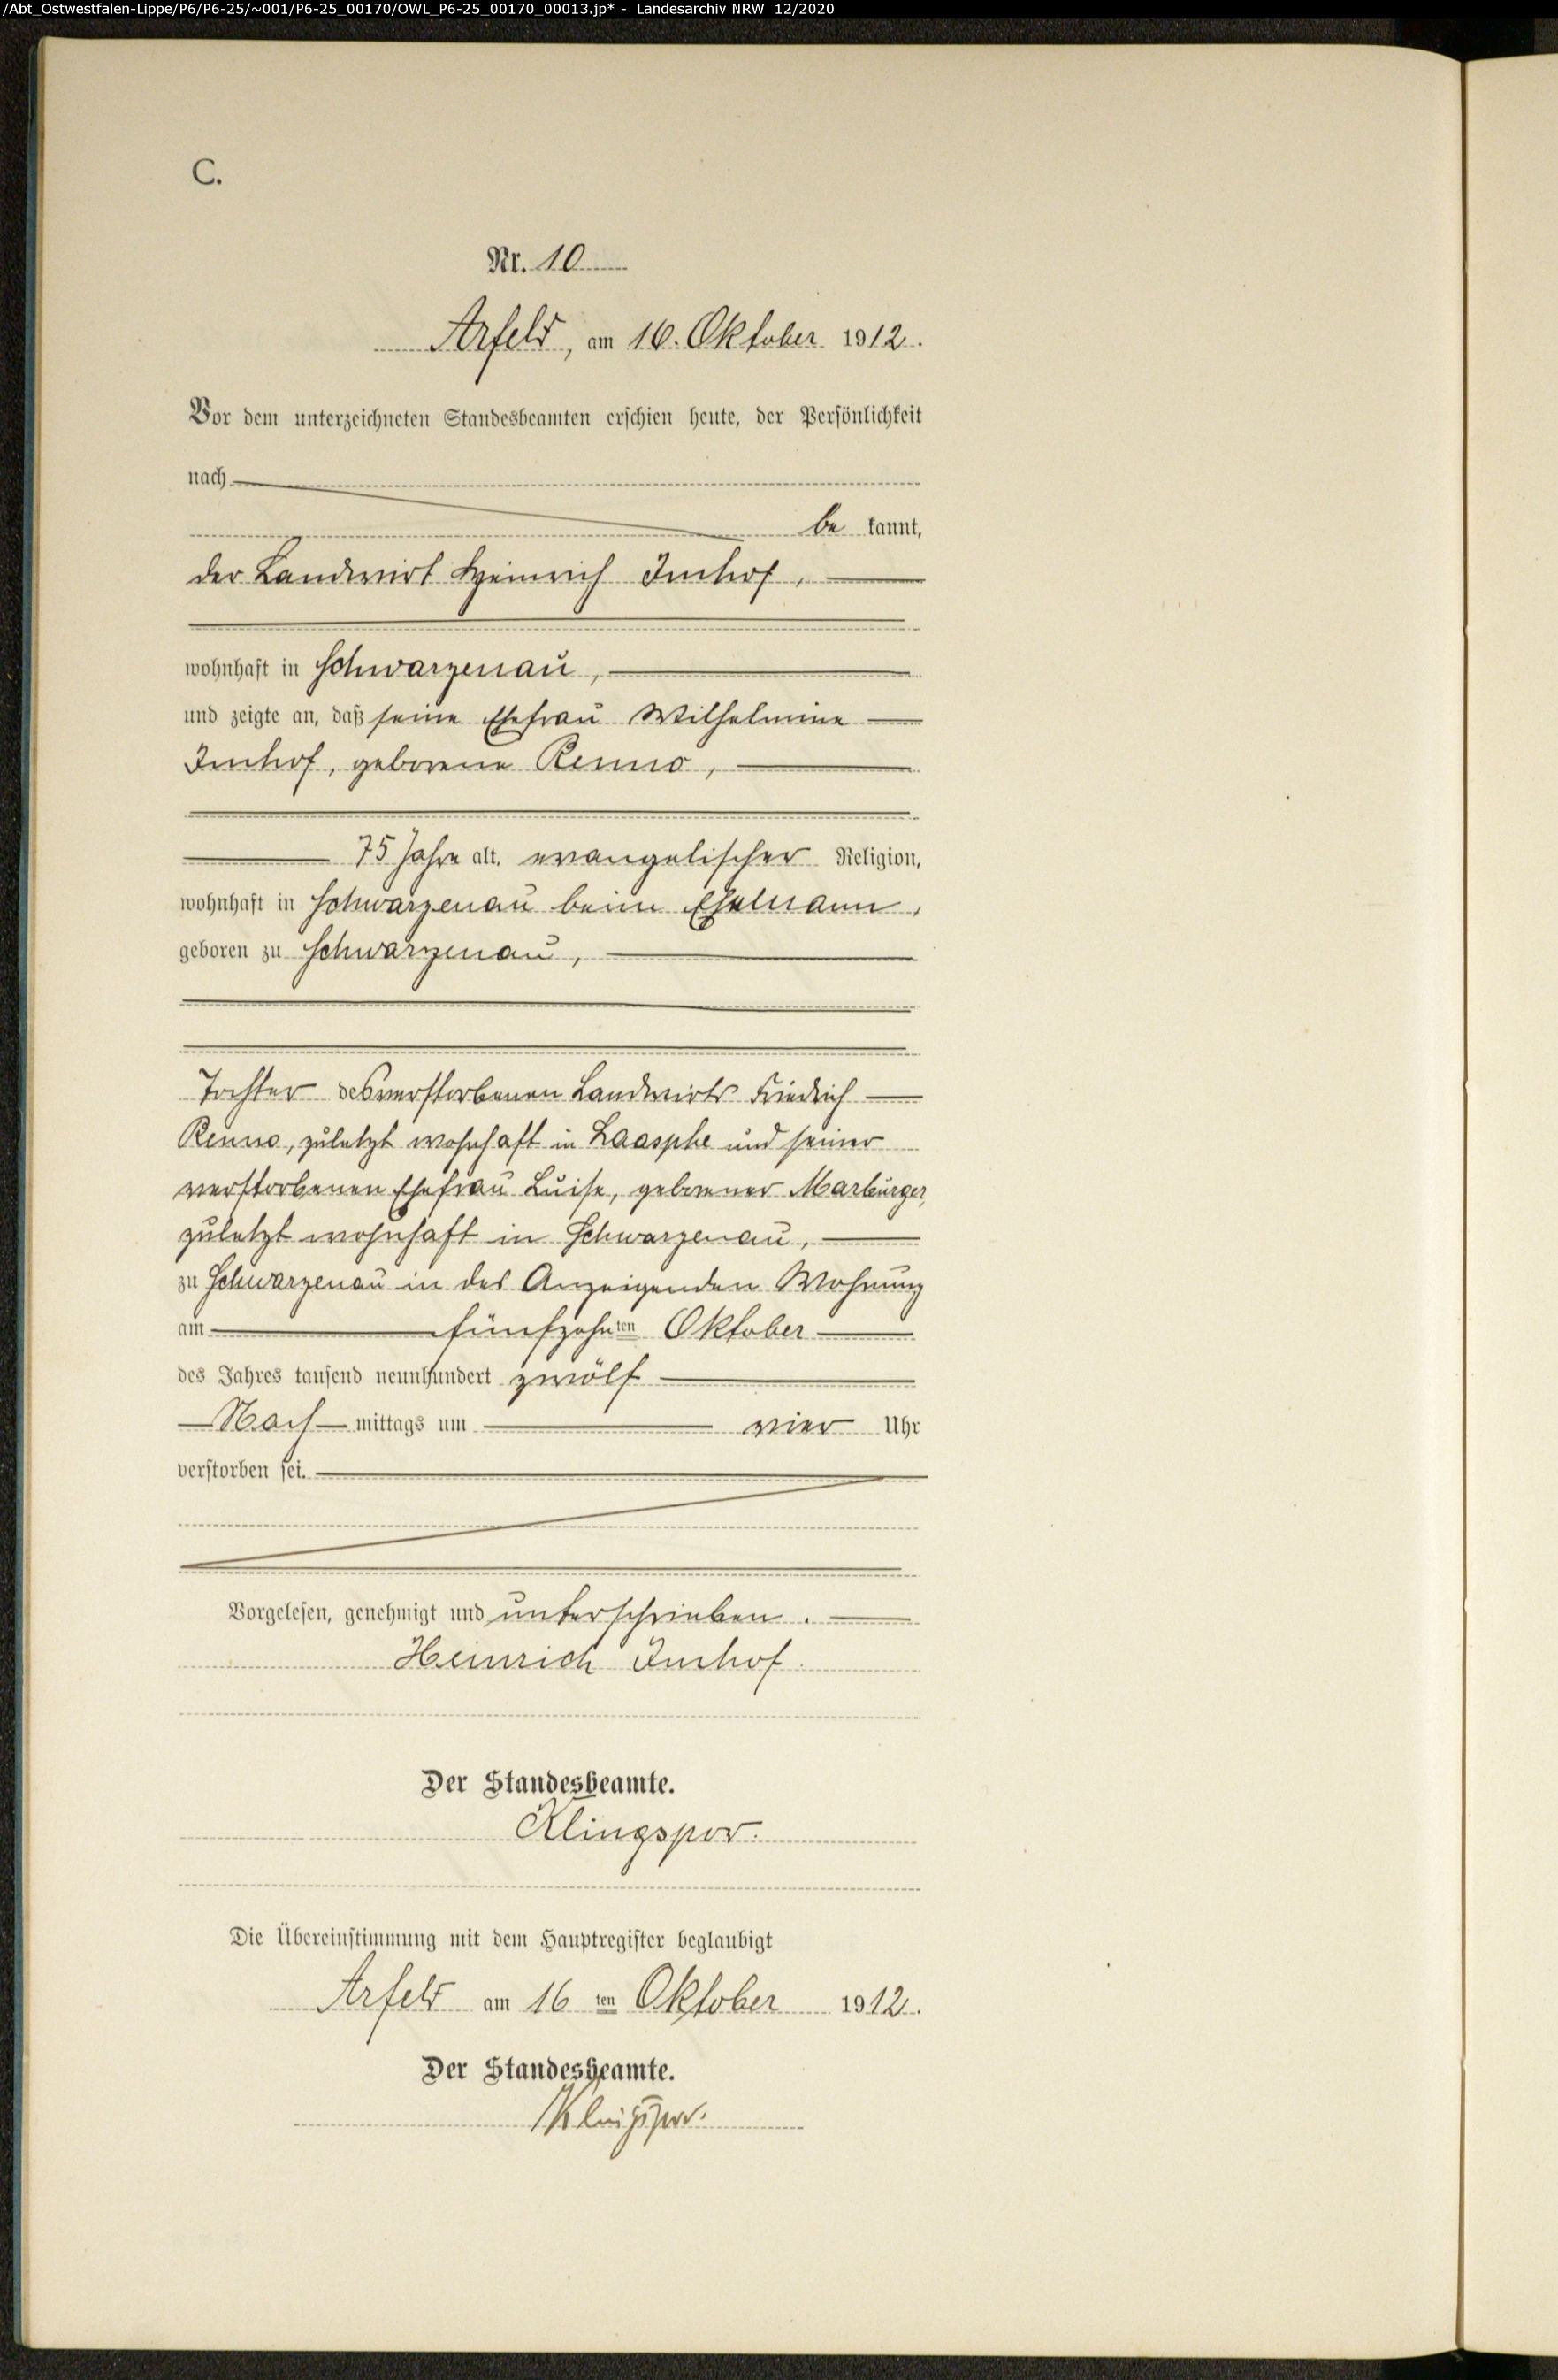 /Abt_Ostwestfalen-Lippe/P6/P6-25/~001/P6-25_00170/OWL_P6-25_00170_00013.jp* - Landesarchiv NRW 12/2020
C.
Nr. 10
Arfeld, am 16. Oktober 1912.
Vor dem unterzeichneten Standesbeamten erschien heute, der Persönlichkeit
nach
be kannt,
der Landwirt Heinrich Imhof,
wohnhaft in Schwarzenau,
und zeigte an, daß seine Ehefrau Wilhelmine
Imhof, geborene Renno,
75 Jahre alt, evangelischer Religion,
wohnhaft in Schwarzenau beim Ehemann,
geboren zu Schwarzenau,
Tochter des verstorbenen Landwirts Friedrich
Renno, zuletzt wohnhaft in Laasphe und seiner
verstorbenen Ehefrau Luise, geborener Marburger,
zuletzt wohnhaft in Schwarzenau,
zu Schwarzenau in des Anzeigenden Wohnung
am fünfzehnten Oktober
des Jahres tausend neunhundert zwölf
Nach mittags um vier Uhr
verstorben sei.
Vorgelesen, genehmigt und unterschrieben.
Heinrich Imhof.
Der Standesbeamte.
Klingspor.
Die Übereinstimmung mit dem Hauptregister beglaubigt
Arfeld am 16 ten Oktober 1912.
Der Standesbeamte.
Klingspor.